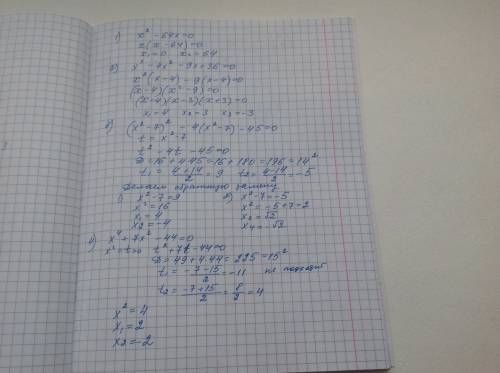 1) x² - 64x=0
x(x-64)=0
x₁=0 x₂=64
2) x³-4x²-9x+36=0
x²(x-4)-9(x-4)=0
(x-4)(x²-9)=0
(x-4)(x-3)(x+3)=0
x₁=4 x₂=3 x₃=-3
3) (x²-7)²-4(x²-7)-45=0
t=x²-7
t²-4t-45=0
D=16+4·45=16+180=196=14²
t₁=(4+14)/2=9 t₂=(4-14)/2=-5
Делаем обратную замену
1) x²-7=9 2) x²-7=-5
x²=16 x²=-5+7=2
x₁=4 x₃=√2
x₂=-4 x₄=-√2
4) x⁴+7x²-44=0
x²=t>0 t²+7t-44=0
D=49+4·44=225=15²
t₁=(-7-15)/2=-11 не подходит
t₂=(-7+15)/2=8/2=4
x²=4
x₁=2
x₂=-2